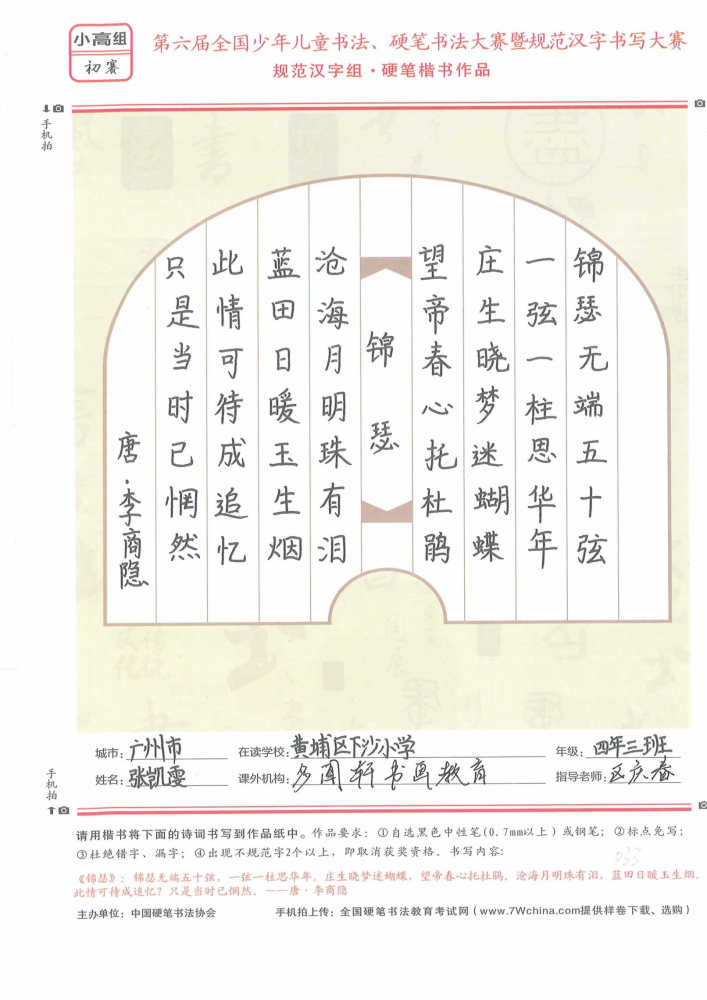 小高组
初赛
第六届全国少年儿童书法、硬笔书法大赛暨规范汉字书写大赛
规范汉字组·硬笔楷书作品
手机拍
锦瑟无端五十弦
一弦一柱思华年
庄生晓梦迷蝴蝶
望帝春心托杜鹃
锦瑟
沧海月明珠有泪
蓝田日暖玉生烟
此情可待成追忆
只是当时已惘然
唐·李商隐
城市：广州市 在读学校：黄埔区下沙小学 年级：四年三班
姓名：张凯雯 课外机构：多闻轩书画教育 指导老师：区庆春
手机拍
请用楷书将下面的诗词书写到作品纸中。作品要求：①自选黑色中性笔(0.7mm以上）或钢笔；②标点免写；
③杜绝错字、漏字；④出现不规范字2个以上，即取消获奖资格。书写内容：
033
《锦瑟》：锦瑟无端五十弦，一弦一柱思华年。庄生晓梦迷蝴蝶，望帝春心托杜鹃。沧海月明珠有泪，蓝田日暖玉生烟。
此情可待成追忆？只是当时已惘然。——唐·李商隐
主办单位：中国硬笔书法协会 手机拍上传：全国硬笔书法教育考试网（www.7Wchina.com提供样卷下载、选购）